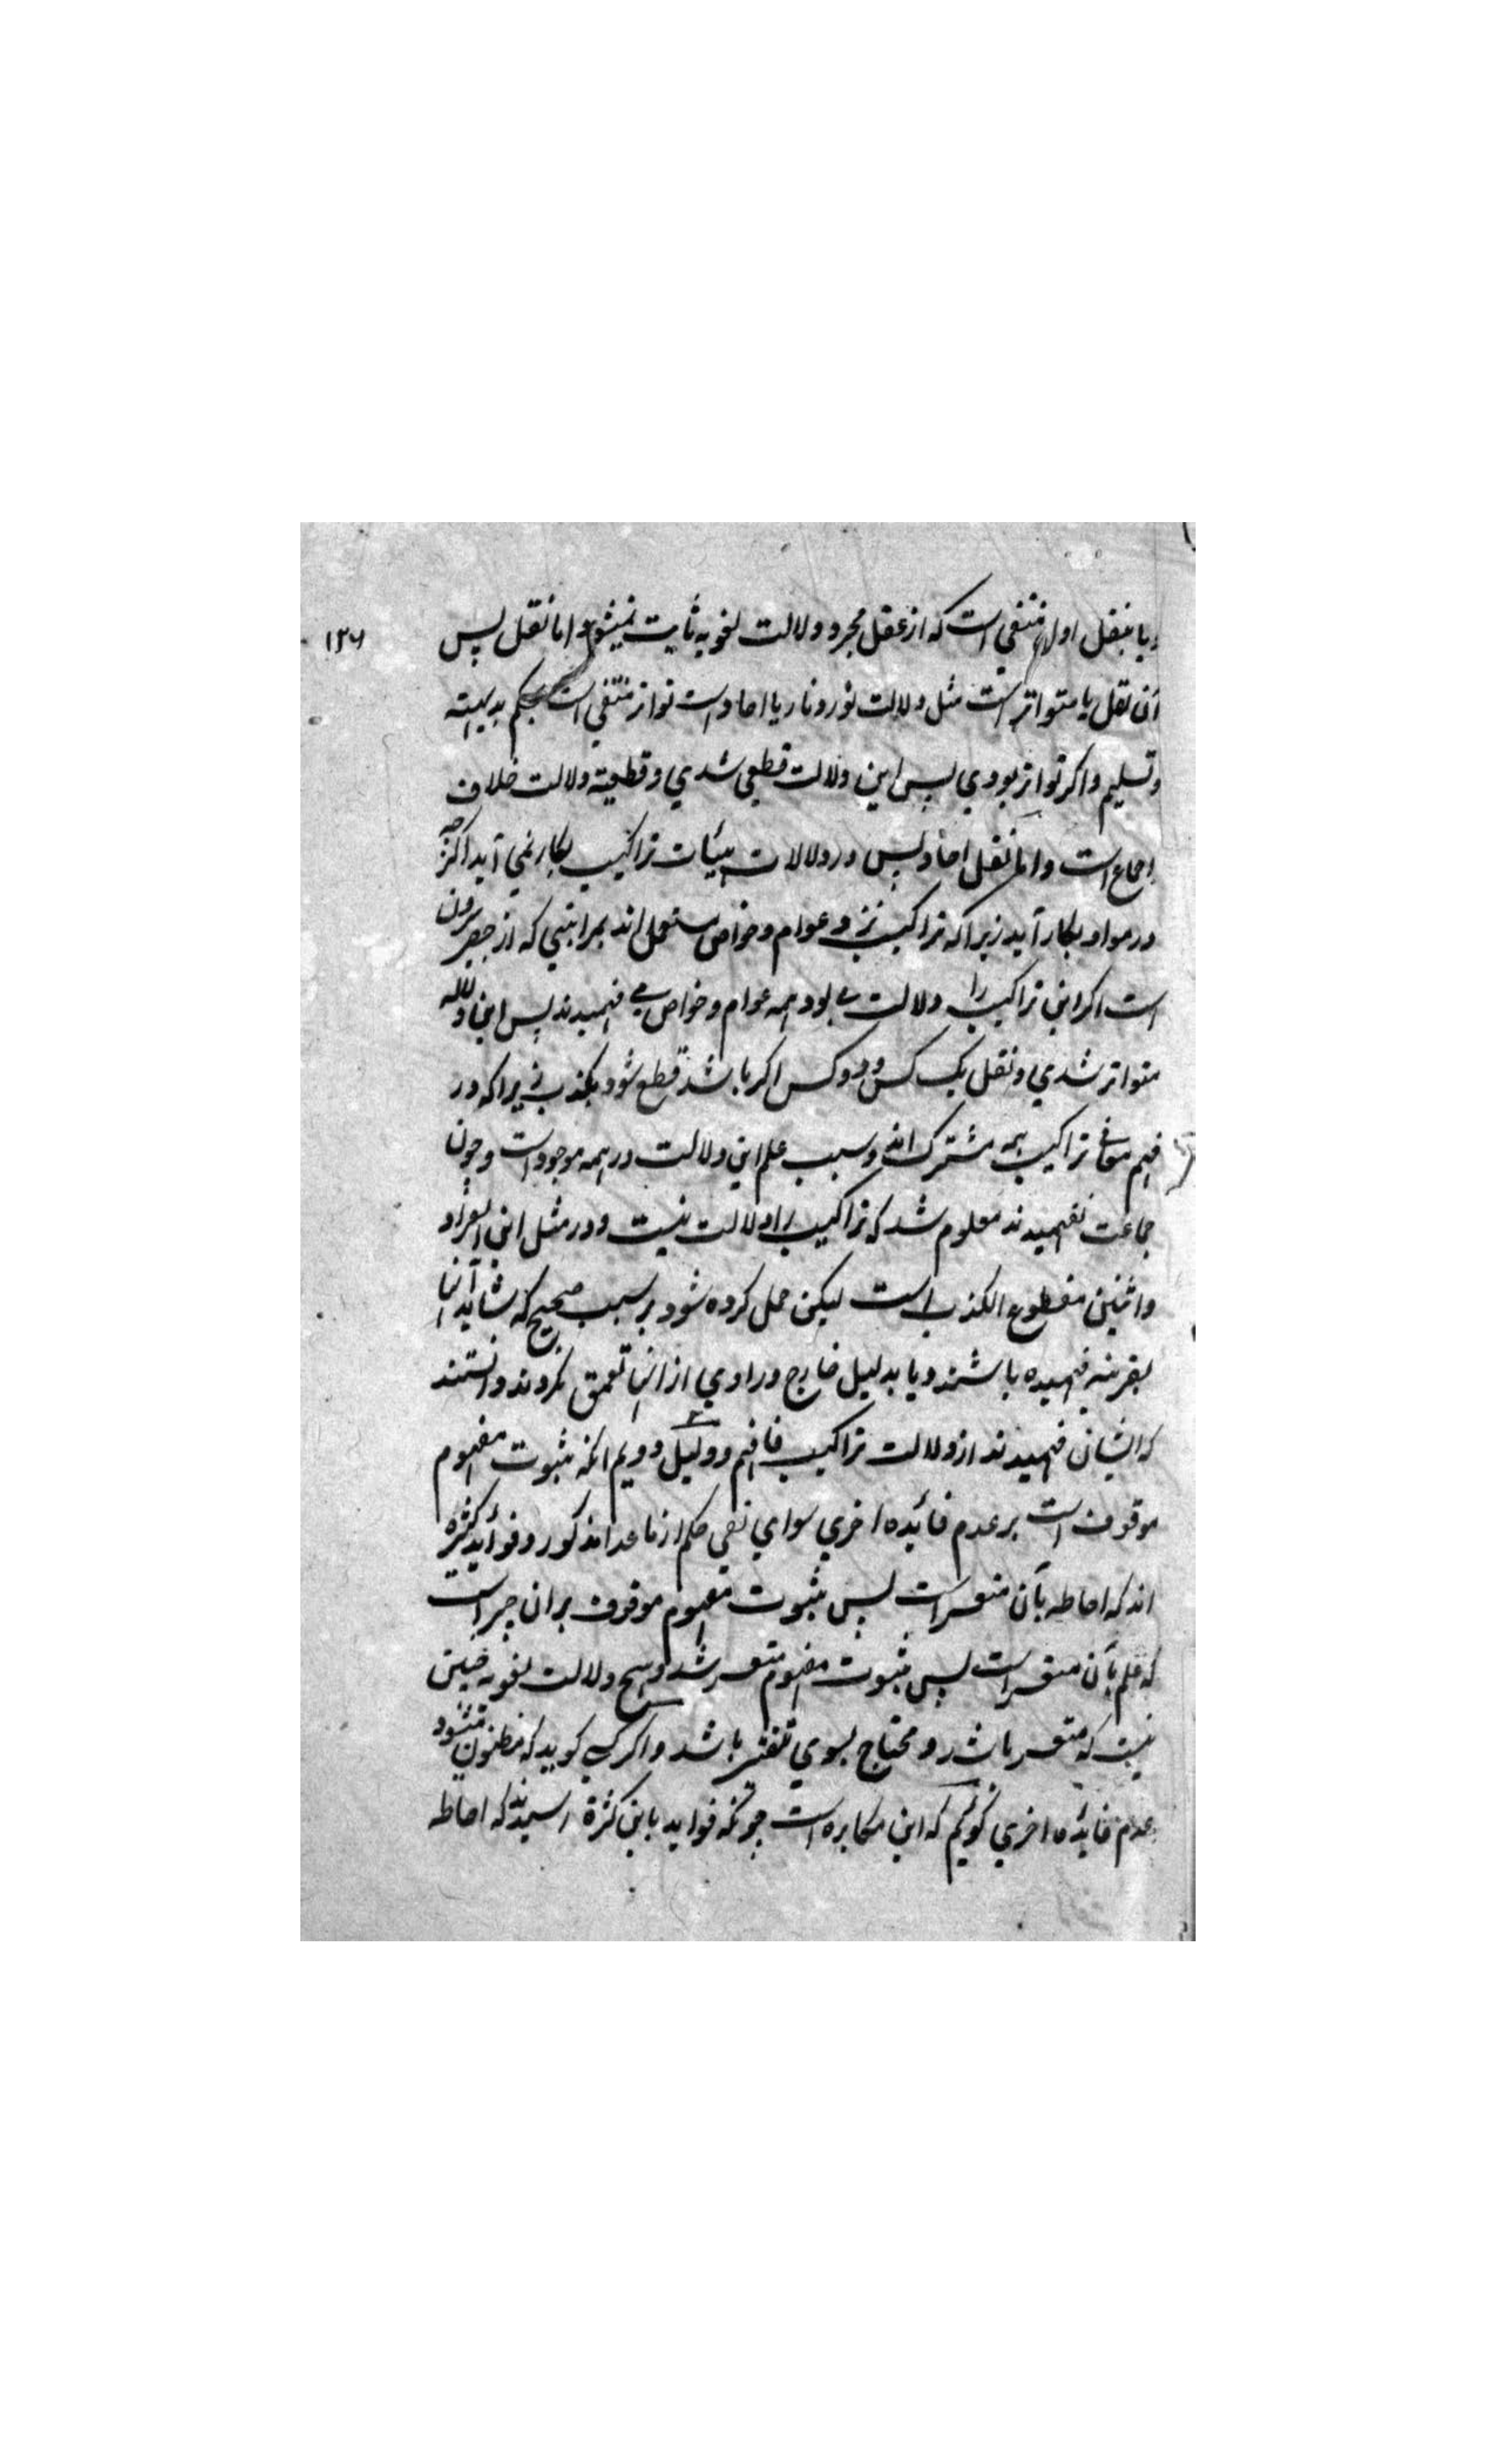 ۱۳۶
یا بنقل اول منتفی است که از عقل مجرد دلالت لغویه ثابت نمیشود اما نقل پس
آن نقل یا متواتر است مثل دلالت نور و نار یا احاد است تواتر منتفی است بحکم بدیهته
و تسلیم و اکر تواتر بودی پس این دلالت قطعی شدی و قطعیة دلالت خلاف
اجماع است و اما نقل احاد پس در دلالات هیئات تراکیب بکار نمی آید اکرچه
در مواد بکار آید زیرا که تراکیب نزد عوام و خواص مستعمل اند بمراتبی که از حصر بیرون
است اکر این تراکیب را دلالت می بود همه عوام و خواص می فهمیدند پس این دلاله
متواتر شدی و نقل یک کس و دو کس اکر باشد قطع شود بکذب زیرا که در
فهم معانی تراکیب همه مشترک اند و سبب علم این دلالت در همه موجود است و چون
جماعت نفهمیدند معلوم شد که تراکیب را دلالت نیست و در مثل این
واثنین مقطوع الکذب است لیکن حمل کرده شود بر سبب صحیح که شاید آنها
بقرینه فهمیده باشند و یا بدلیل خارج و راوی از انها تعمق نکردند دانستند
که ایشان فهمیدند از دلالت تراکیب فافهم و دلیل دویم انکه ثبوت مفهوم
موقوف است بر عدم فائده اخری سوای نفی حکم از ما عدا مذکور و فواید کثیره
اند که احاطه بآن متعسر است پس ثبوت مفهوم موقوف بر ان چیز است
که علم بآن متعسر است پس ثبوت مفهوم متعسر شد و هیچ دلالت لغویه چنین
نیست که متعسر باشد و محتاج بسوی باشد و اکر کسی کوید که مظنون میشود
عدم فائده اخری کوئیم که این مکابره است چونکه فواید باین کثرة رسیدند که احاطه